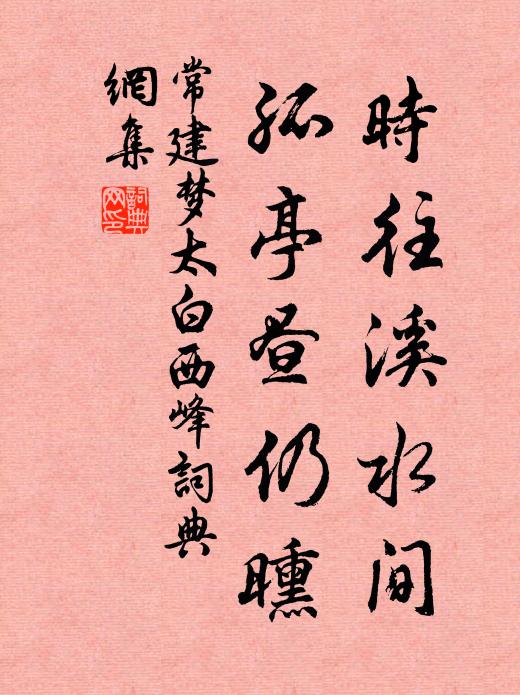 時往溪水间
孤亭昼仍曛
常建梦太白西峰詞典
網集
詞典
网印